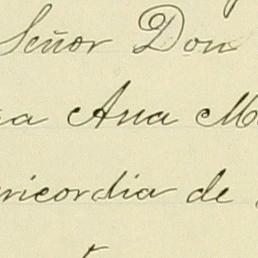 Señor Don
a Ana M
ricordia de